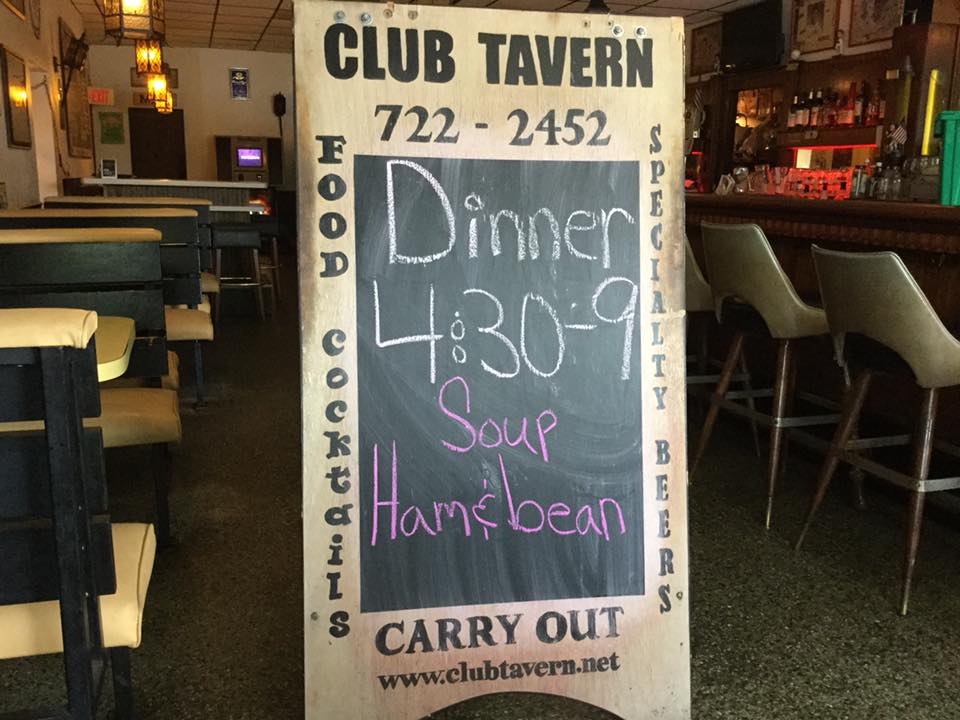 CLUB TAVERN
722 - 2452
FOOD COCKTAILS
SPECIALTY BEERS
Dinner
4:30-9
Soup
Ham & bean
CARRY OUT
www.clubtavern.net
EXIT